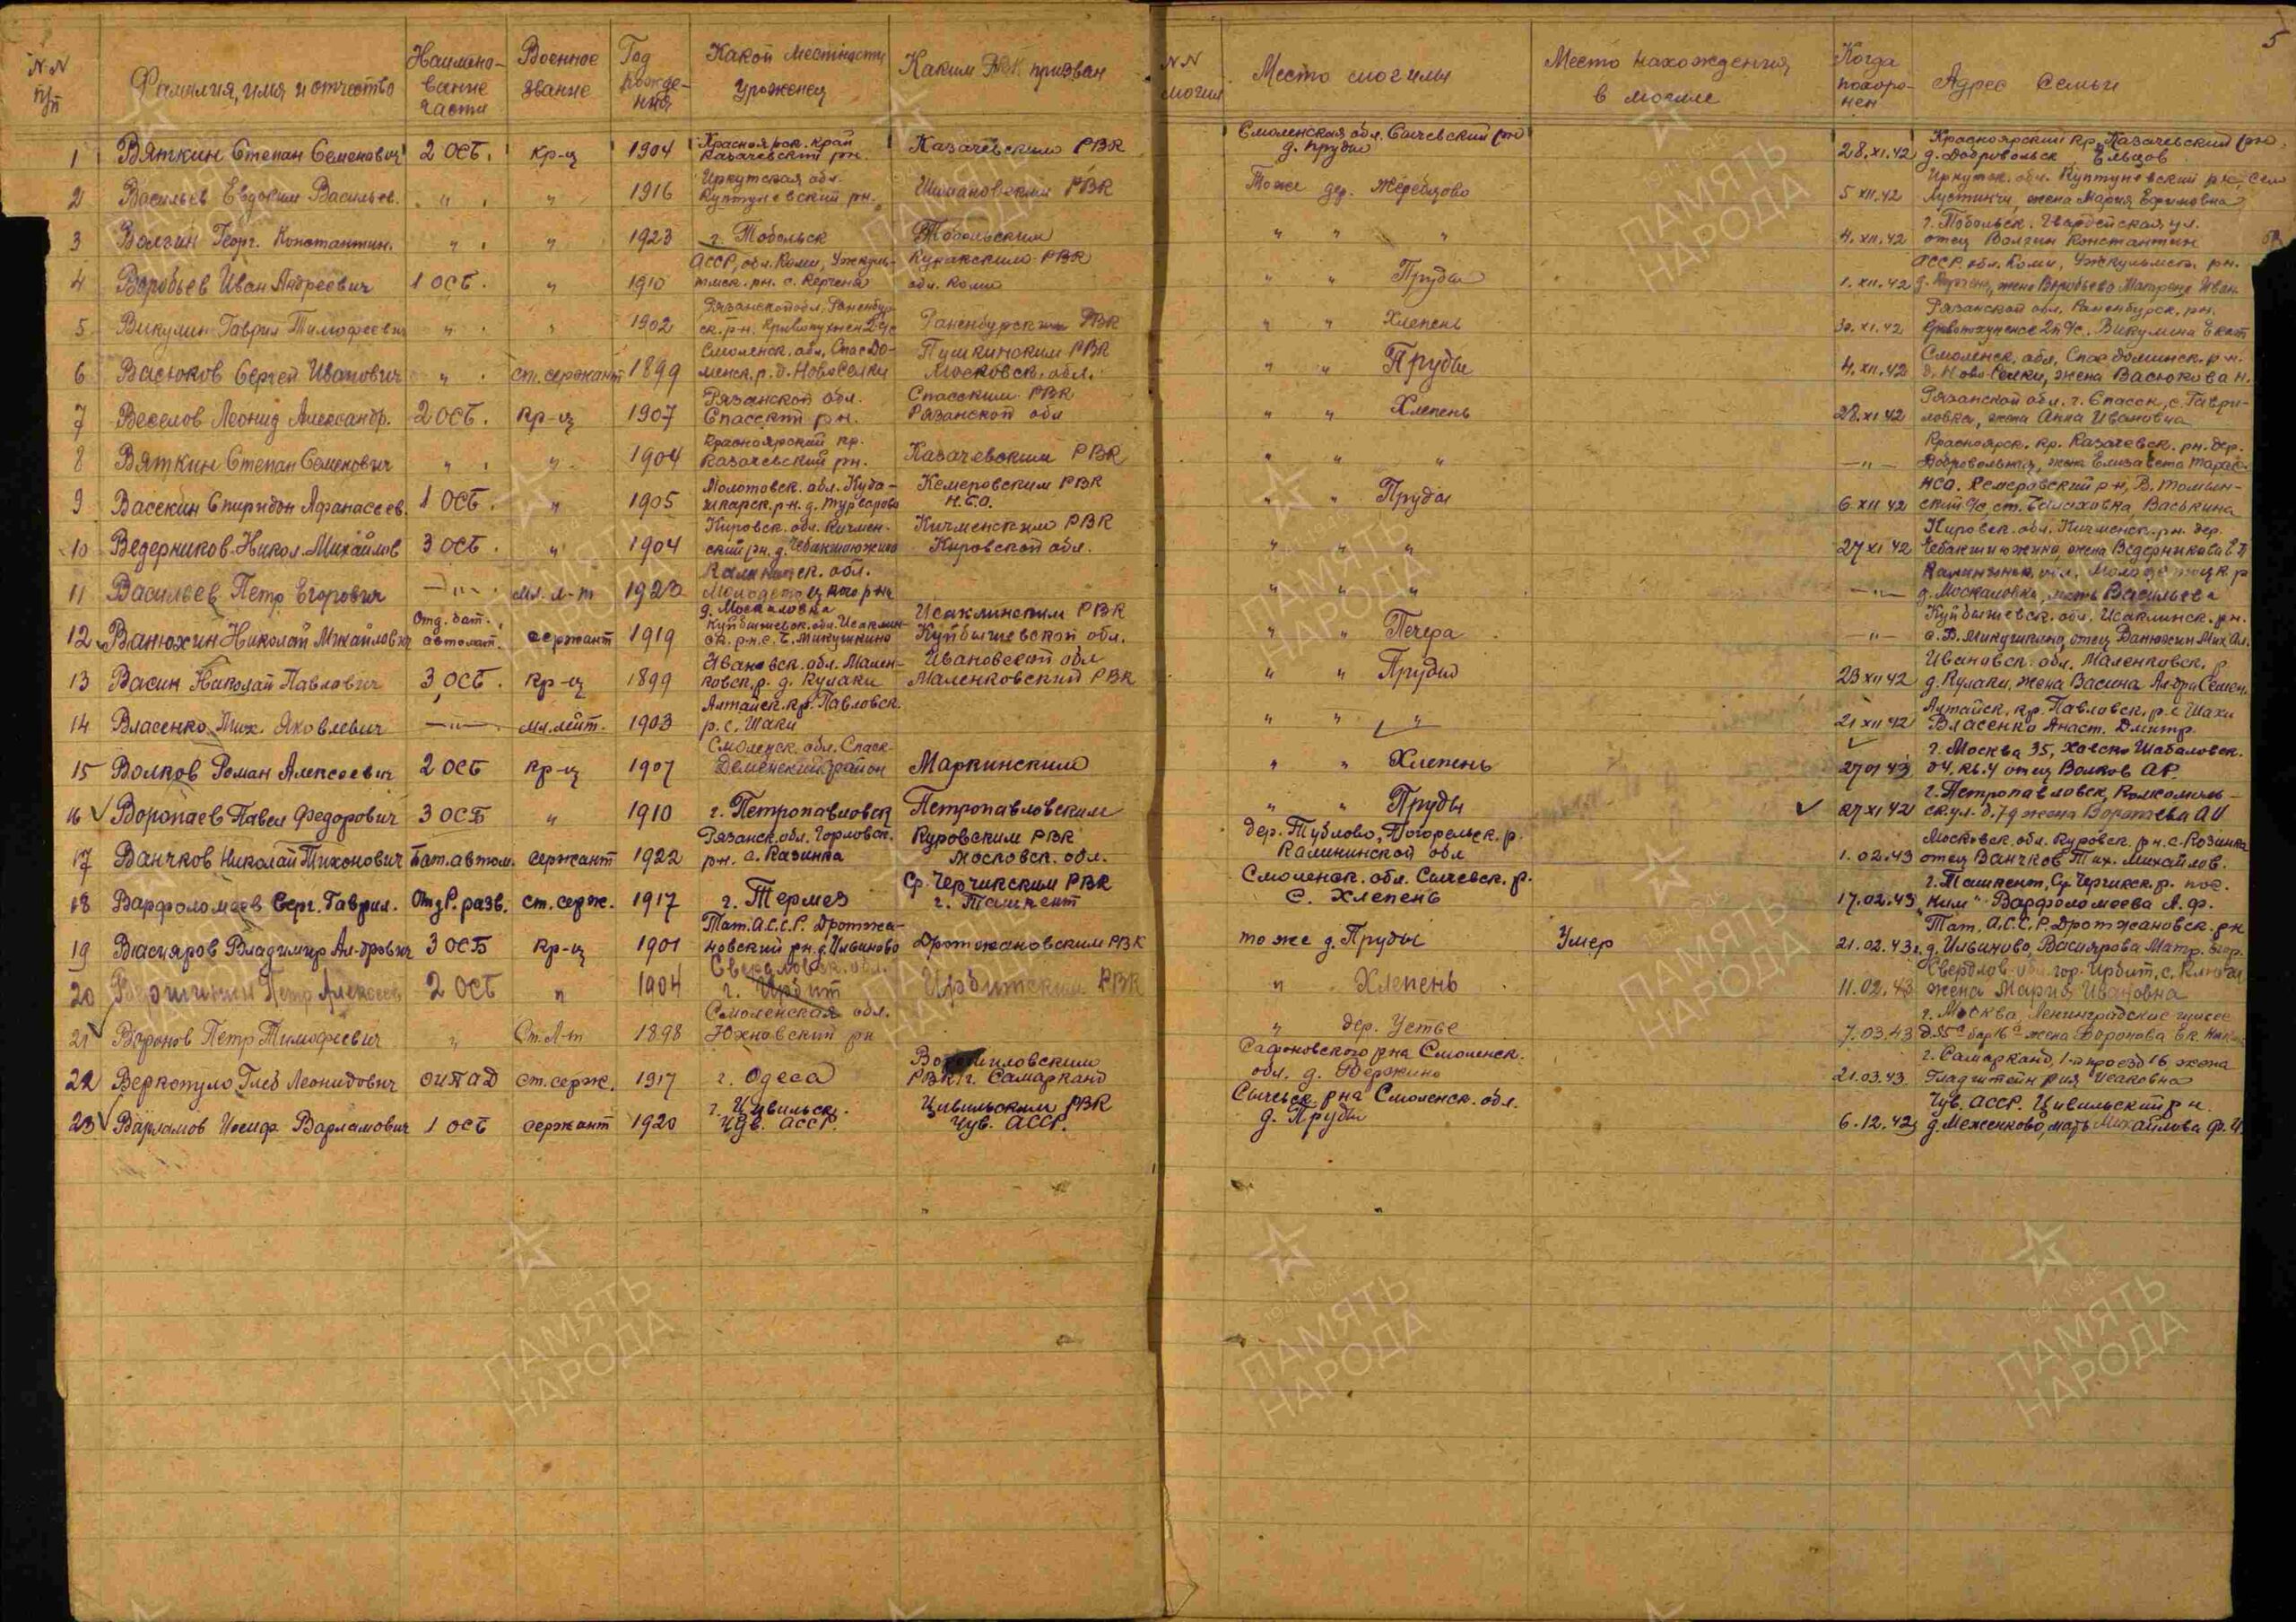 5
N.N п/п Фамилия, имя и отчество Наимено-вание части Военное звание Год рожде-ния Какой местности уроженец Каким РВК призван NN могил Место могилы Место нахождения в могиле Когда похоро-нен Адрес семьи
1 Вяткин Степан Семенович 2 ОСБ. кр-ц 1904 Красноярск. край Казачевский рн. Казачевским РВК Смоленская обл. Сычевский рн д. Пруды 28.XI.42 Красноярский кр, Казачевский рн, д. Добровольск
2 Васильев Евдоким Васильев. " " 1916 Иркутская обл. Куптулевский рн. РВК Тоже дер. Жеребцово 5 XII.42 Иркутск. обл. Куптуневский рн, село жена Мария Ефимовна
3 Волгин Георг. Константин. " " 1923 г. Тобольск Тобольским " " " 4.XII.42 г. Тобольск. Гвардейская ул. отец Волгин Константин
4 Воробьев Иван Андреевич 1 ОСБ. " 1910 АССР, обл. Коми, с. Керчена РВК обл. Коми " " Пруды 1.XII.42 АССР. обл. Коми, рн. жена Воробьева
5 Викулин Гаврил Тимофеевич " " 1902 Рязанской обл. Раненбург-ск. рн. Раненбургским РВК " " Хлепень 30.XI.42 Рязанской обл. Раненбургск. рн. Викулина Екат
6 Васюков Сергей Иванович " ст. сержант 1899 Смоленск. обл. Спас До-менск. р. д. Новоселки Пушкинским РВК Московск. обл. " " Пруды 4.XII.42 Смоленск. обл, Спас доминск. р-н. д. Ново Селки, жена Васюкова Н.
7 Веселов Леонид Александр. 2 ОСБ. кр-ц 1907 Рязанской обл. Спасский рн. Спасским РВК Рязанской обл " " Хлепень 28.XI.42 Рязанской обл. г. Спасск, с. Гаври-ловка, жена Анна Ивановна
8 Вяткин Степан Семенович " " 1904 Красноярский кр. Казачевский рн. Казачевским РВК " " " —"— Красноярск. кр. Казачевск. рн. дер. Добровольная, жена Елизавета Тарас.
9 Васекин Спиридон Афанасьев. 1 ОСБ. " 1905 Молотовск. обл. Куда-шкарск. р-н. д. Кемеровским РВК Н.С.О. " " Пруды 6 XII 42 НСО. Кемеровский рн, В. Томьин-ский с/с, ст. Балаховка, Васькина
10 Ведерников Никол. Михайлов 3 ОСБ. " 1904 Кировск. обл. Кичмен-ский рн. д. Кичменским РВК Кировской обл. " " " 27 XI 42 Кировск. обл. Кичменск. рн. дер. жена Ведерникова
11 Васильев Петр Егорович —"— мл. л-т 1923 Калининск. обл. рн д. Москаловка " " " —"— Калининск. обл. р д. Москаловка, мать Васильева
12 Ванюхин Николай Михайлович Отд. бат. автомат. сержант 1919 Куйбышевск. обл. Исаклин-ск. р-н. с. Б. Микушкино Исаклинским РВК Куйбышевской обл. " " Печера —"— Куйбышевск. обл. Исаклинск. рн. с. Б. Микушкино, отец Ванюхин Мих Ал.
13 Васин Николай Павлович 3 ОСБ. кр-ц 1899 Ивановск. обл. Мален-ковск. р. д. Кулаки Ивановской обл Маленковский РВК " " Пруды 23 XII 42 Ивановск. обл. Маленковск. р. д. Кулаки, жена Васина Ал-дра Семен.
14 Власенко Мих. Яковлевич —"— мл. лейт. 1903 Алтайск. кр. Павловск. р. с. Шахи " " " 21 XII 42 Алтайск. кр. Павловск. р. с Шахи Власенко Анаст. Дмитр.
15 Волков Роман Алексеевич 2 ОСБ кр-ц 1907 Смоленск. обл. Спаск Деменский район Маркинским " " Хлепень г. Москва 35, Хавско Шабаловск. кв. 4 отец Волков АР.
16 Воропаев Павел Федорович 3 ОСБ " 1910 г. Петропавловск Петропавловским " " Пруды 27 XI 42 г. Петропавловск, Комсомоль-ск ул. д. 79 жена Воропаева АИ
17 Ванчков Николай Тихонович Бат. автом. сержант 1922 Рязанск. обл. Горловск. рн. с. Казинка Куровским РВК Московск. обл. дер. Тублово, Погорельск. р. Калининской обл 1.02.43 Московск. обл. Куровск. рн. с. Козинка отец Ванчков Тих. Михайлов.
18 Варфоломеев Серг. Гаврил. Отд Р. разв. ст. серж. 1917 г. Термез Ср. Черчикским РВК г. Ташкент Смоленск. обл. Сычевск. р. с. Хлепень 17.02.43 г. Ташкент, Ср. Черчикск. р. пос. Варфоломеева А. Ф.
19 Васияров Владимир Ал-дрович 3 ОСБ кр-ц 1901 Тат. А.С.С.Р. Дрожжа-новский рн. д. Ильиново Дрожжановским РВК то же д. Пруды Умер 21.02.43г. Тат. А.С.С.Р. Дрожжановск. рн д. Ильиново, Васиярова Матр. Егор.
20 Петр Алексеев. 2 ОСБ " 1904 Свердловск. обл. г. Ирбит Ирбитским РВК " Хлепень 11.02.43 Свердлов. обл. гор. Ирбит, с. Ключи жена Мария Ивановна
21 Воронов Петр Тимофеевич " Ст. Л-т 1898 Смоленская обл. Юхновский рн " дер. Устье 7.03.43 г. Москва, Ленинградское шоссе жена Воронова Ек.
22 Веркопуло Глеб Леонидович ОИПАД ст. серж. 1917 г. Одеса Ворошиловским РВК г. Самарканд Сафоновского рна Смоленск. обл. д. 21.03.43 г. Самарканд, 1-й проезд 16 жена Исаковна
23 Варламов Иосиф Варламович 1 ОСБ сержант 1920 г. Цивильск. Чув. АССР. Цивильским РВК Чув. АССР. Сычевск. рна Смоленск. обл. д. Пруды 6.12.42 Чув. АССР. Цивильский рн. д. Меженково, мать Михайлова Ф. И.
ПАМЯТЬ НАРОДА
1941-1945